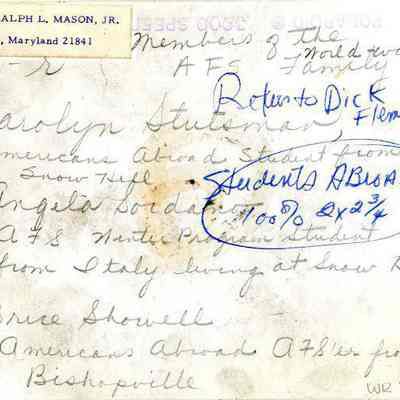 ALPH L. MASON, JR.
, Maryland 21841
POLAROID ® 3200 SPEED
Members of the
World two
L-r AFS Family
Return to Dick
Flem
arolyn Stutsman
mericans Abroad Student from
Snow Hill
Students ABroA
100% 2x2 3/4
Angela
AFS Winter Program Student
from Italy living at Snow H
Brice Showell
Americans Abroad AFS'er fro
Bishopville
WR